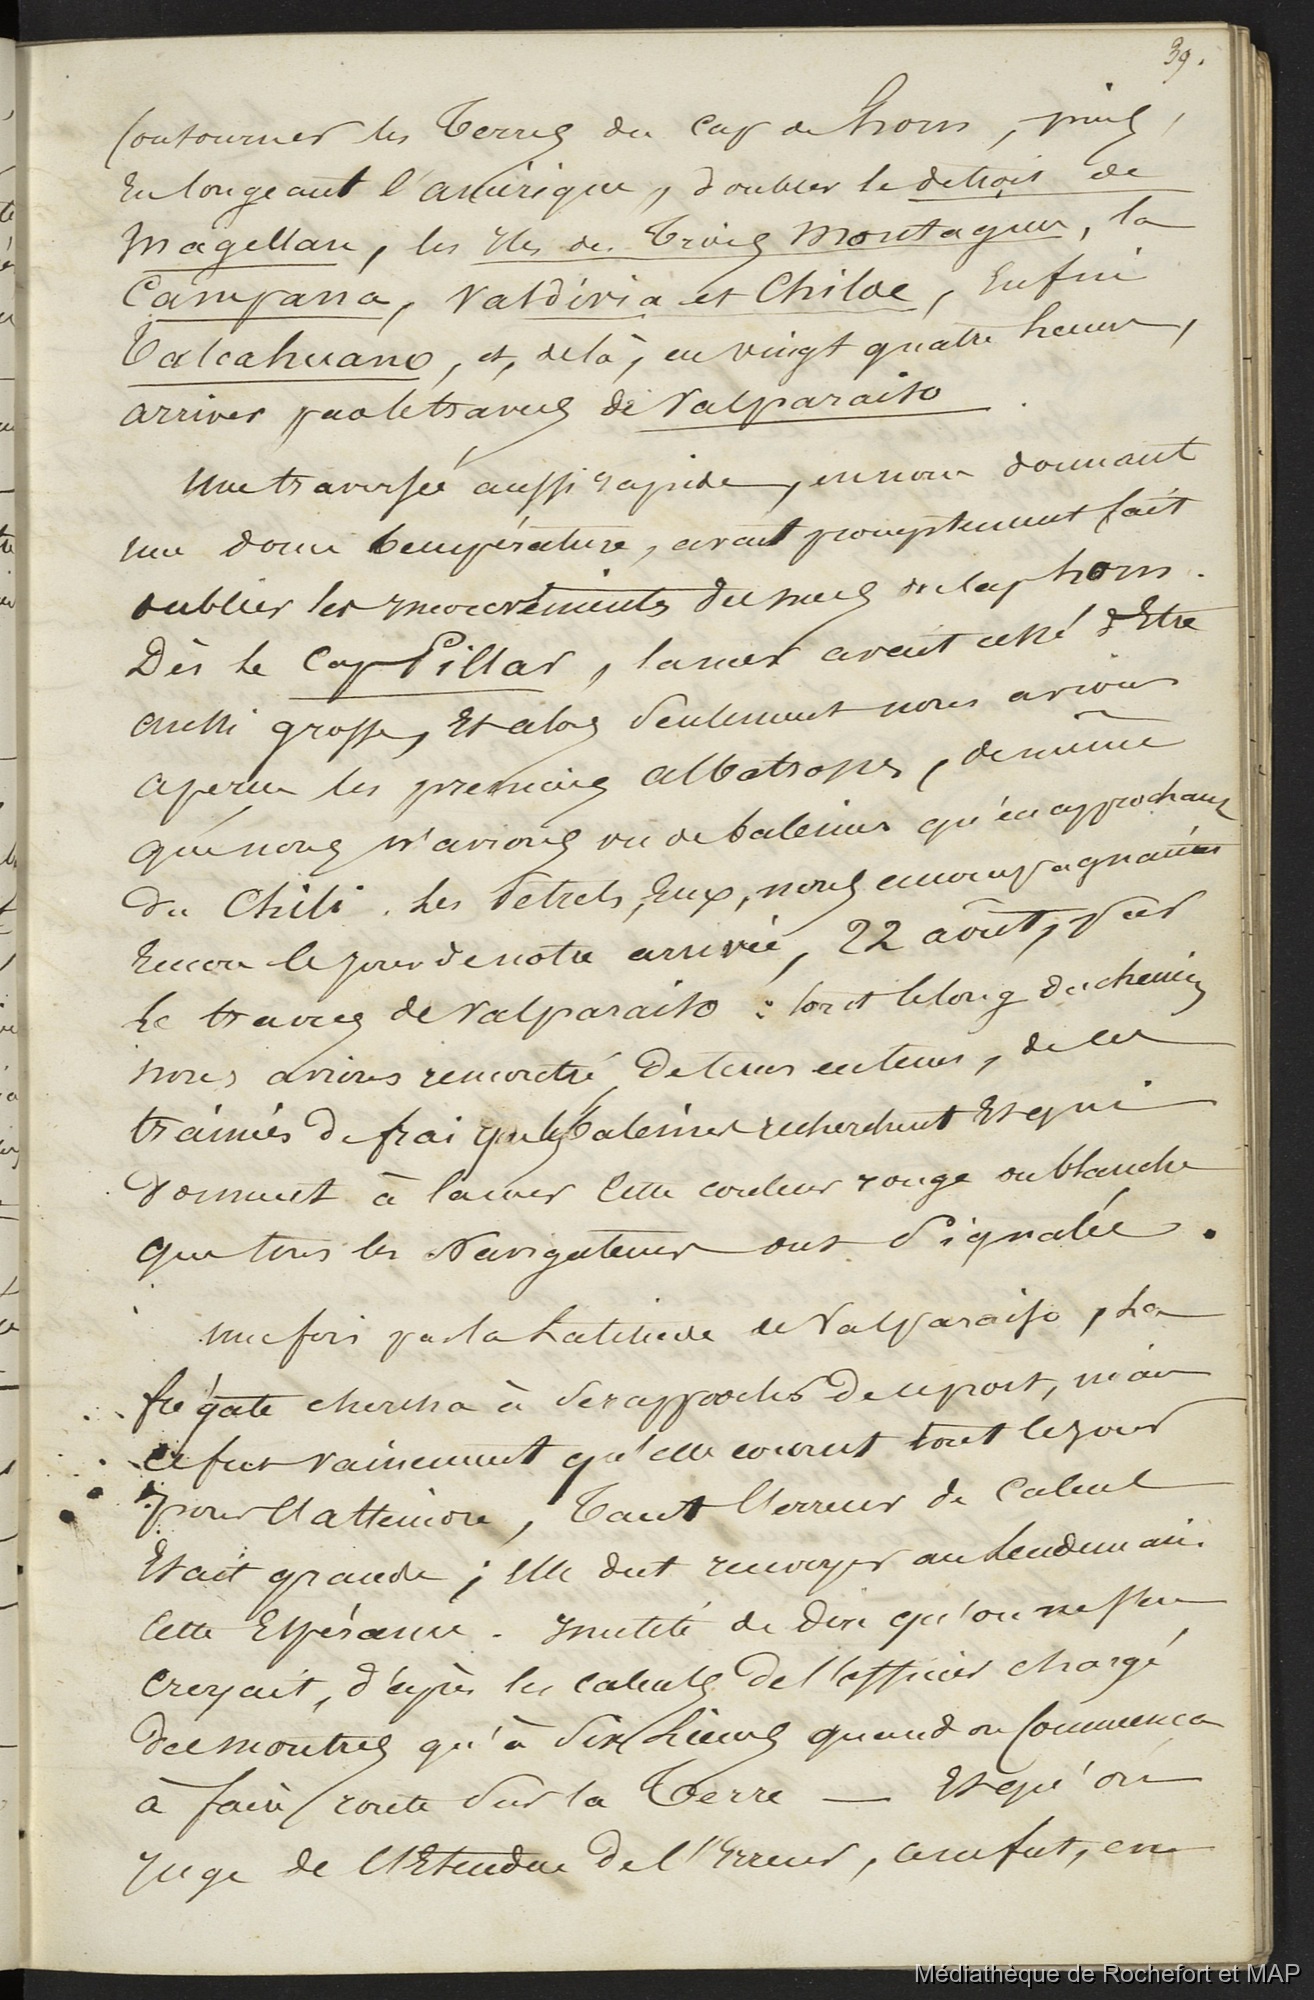 39.
Contourner les Terres du Cap de horn, puis,
En longeant l'amérique, doubler le détroit de
Magellan, les Iles des Trois Montagnes, la
Campana, Valdivia et Chiloe, Enfin
Talcahuano, et, delà, en vingt quatre heures,
arriver par le travers de Valparaiso.
Une traversée aussi rapide, en nous donnant
une douce température, avait promptement fait
oublier les mouvements des mers du Cap horn.
Dès le Cap Pillar, la mer avait cessé d'Etre
aussi grosse, Et alors Seulement nous avions
aperçu les premiers albatrosses, de même
que nous n'avions vu de baleines qu'en approchant
du Chili. Les Pétrels, Eux, nous accompagnaient
Encore le jour de notre arrivée, 22 août, par
le travers de Valparaiso : tout le long du chemin
nous avions rencontré, de tems en tems, de ces
trainées de frai que les baleines recherchent Et qui
donnent à la mer Cette couleur rouge ou blanche
que tous les Navigateurs ont Signalée.
une fois par la Latitude de Valparaiso, La
frégate chercha à Se rapprocher de ce port, mais
ce fut vainement qu'elle courut tout le jour
pour l'atteindre, Tant l'erreur de Calcul
Etait grande ; Elle dut renvoyer au Lendemain
Cette Espérance. Inutile de dire qu'on ne s'en
croyait, d'après les Calculs de l'officier chargé
des montres qu'à dix Lieues quand on Commença
à faire route Sur la Terre — Et qu'on
juge de l'Etendue de l'Erreur, ce ne fut, en
Médiathèque de Rochefort et MAP